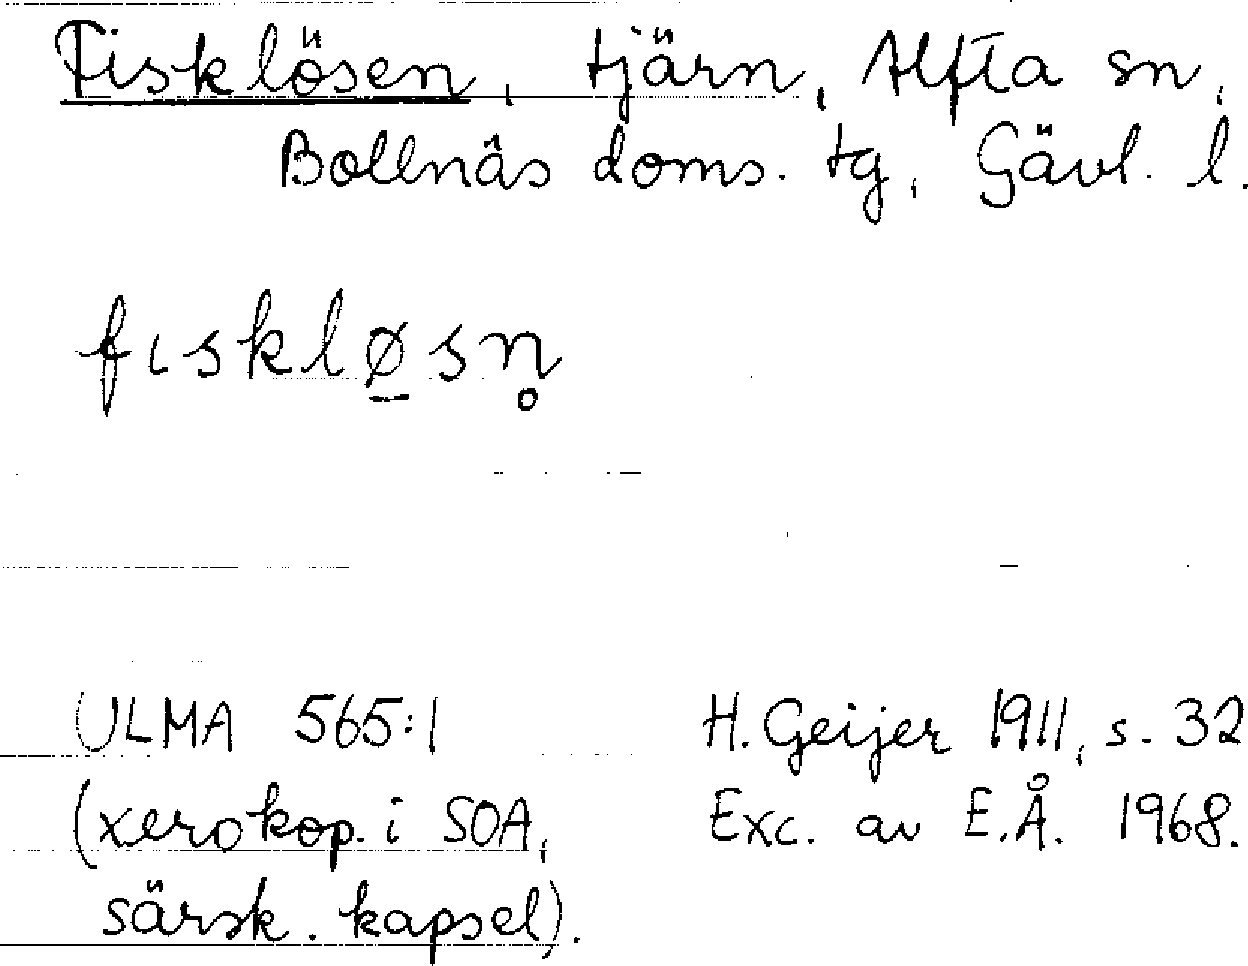 Fisklösen, tjärn, Alfta sn,
Bollnäs doms. tg, Gävl. l.
fıskløsn̥
ULMA 565:1
(xerokop. i SOA,
särsk. kapsel).
H. Geijer 1911, s. 32
Exc. av E.Å. 1968.